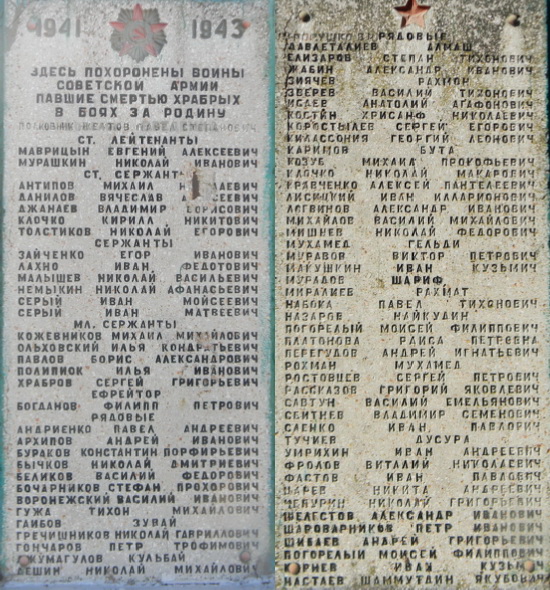 1941 1943
ЗДЕСЬ ПОХОРОНЕНЫ ВОИНЫ
СОВЕТСКОЙ АРМИИ
ПАВШИЕ СМЕРТЬЮ ХРАБРЫХ
В БОЯХ ЗА РОДИНУ
ПАВЕЛ СТЕПАНОВИЧ
СТ. ЛЕЙТЕНАНТЫ
МАВРИЦЫН ЕВГЕНИЙ АЛЕКСЕЕВИЧ
МУРАШКИН НИКОЛАЙ ИВАНОВИЧ
СТ. СЕРЖАНТЫ
АНТИПОВ МИХАИЛ
ДАНИЛОВ ВЯЧЕСЛАВ
ДЖАНАЕВ ВЛАДИМИР БОРИСОВИЧ
КЛОЧКО КИРИЛЛ НИКИТОВИЧ
ТОЛСТИКОВ НИКОЛАЙ ЕГОРОВИЧ
СЕРЖАНТЫ
ЗАЙЧЕНКО ЕГОР ИВАНОВИЧ
ЛАХНО ИВАН ФЕДОТОВИЧ
МАЛЫШЕВ НИКОЛАЙ ВАСИЛЬЕВИЧ
НЕМЫКИН НИКОЛАЙ АФАНАСЬЕВИЧ
СЕРЫЙ ИВАН МОИСЕЕВИЧ
СЕРЫЙ ИВАН МАТВЕЕВИЧ
МЛ. СЕРЖАНТЫ
КОЖЕВНИКОВ МИХАИЛ МИХАЙЛОВИЧ
ОЛЬХОВСКИЙ ИЛЬЯ КОНДРАТЬЕВИЧ
ПАВЛОВ БОРИС АЛЕКСАНДРОВИЧ
ПОЛИПНОК ИЛЬЯ ИВАНОВИЧ
ХРАБРОВ СЕРГЕЙ ГРИГОРЬЕВИЧ
ЕФРЕЙТОР
БОГДАНОВ ФИЛИПП ПЕТРОВИЧ
РЯДОВЫЕ
АНДРИЕНКО ПАВЕЛ АНДРЕЕВИЧ
АРХИПОВ АНДРЕЙ ИВАНОВИЧ
БУРАКОВ КОНСТАНТИН ПОРФИРЬЕВИЧ
БЫЧКОВ НИКОЛАЙ ДМИТРИЕВИЧ
БЕЛИКОВ ВАСИЛИЙ ФЕДОРОВИЧ
БОЧАРНИКОВ СТЕФАН ПРОХОРОВИЧ
ВОРОНЕЖСКИЙ ВАСИЛИЙ ИВАНОВИЧ
ГУЖА ТИХОН МИХАЙЛОВИЧ
ГАИБОВ ЗУВАЙ
ГРЕЧИШНИКОВ НИКОЛАЙ ГАВРИЛЛОВИЧ
ГОНЧАРОВ ПЕТР ТРОФИМОВИЧ
ДЖУМАГУЛОВ КУЛЬБАЙ
ДЕШИН НИКОЛАЙ МИХАЙЛОВИЧ
РЯДОВЫЕ
ДАВЛЕТАЛИЕВ АЛМАШ
ЕЛИЗАРОВ СТЕПАН ТИХОНОВИЧ
ЖАБИН АЛЕКСАНДР ИВАНОВИЧ
ЗИЯЧЕВ РАХМОН
ЗВЕРЕВ ВАСИЛИЙ ТИХОНОВИЧ
ИСАЕВ АНАТОЛИЙ АГАФОНОВИЧ
КОСТИН ХРИСАНФ НИКОЛАЕВИЧ
КОРОСТЫЛЕВ СЕРГЕЙ ЕГОРОВИЧ
КИЛАССОНИЯ ГЕОРГИЙ ЛЕОНОВИЧ
КАРИМОВ БУТА
КОЗУБ МИХАИЛ ПРОКОФЬЕВИЧ
КЛОЧКО НИКОЛАЙ МАКАРОВИЧ
КРАВЧЕНКО АЛЕКСЕЙ ПАНТЕЛЕЕВИЧ
ЛИСИЧКИЙ ИВАН ИЛЛАРИОНОВИЧ
ЛОГВИНОВ АЛЕКСАНДР ИВАНОВИЧ
МИХАЙЛОВ ВАСИЛИЙ МИХАЙЛОВИЧ
МИШНЕВ НИКОЛАЙ ФЕДОРОВИЧ
МУХАМЕД ГЕЛЬДИ
МУРАВОВ ВИКТОР ПЕТРОВИЧ
МАКУШКИН ИВАН КУЗЬМИЧ
МУРАДОВ ШАРИФ
МИРАЛИЕВ РАХМАТ
НАБОКА ПАВЕЛ ТИХОНОВИЧ
НАЗАРОВ НАЙКУДИН
ПОГОРЕЛЫЙ МОИСЕЙ ФИЛИППОВИЧ
ПЛАТОНОВА РАИСА ПЕТРОВНА
ПЕРЕГУДОВ АНДРЕЙ ИГНАТЬЕВИЧ
РОХМАН МУХАМЕД
РОСТОВЦЕВ СЕРГЕЙ ПЕТРОВИЧ
РАССКАЗОВ ГРИГОРИЙ ЯКОВЛЕВИЧ
САВТУН ВАСИЛИЙ ЕМЕЛЬЯНОВИЧ
СБИТНЕВ ВЛАДИМИР СЕМЕНОВИЧ
СЛЕНКО ИВАН ПАВЛОВИЧ
ТУЧИЕВ ДУСУРА
УМРИХИН ИВАН АНДРЕЕВИЧ
ФРОЛОВ ВИТАЛИЙ НИКОЛАЕВИЧ
ФАСТОВ ИВАН ПАВЛОВИЧ
ЦАРЕВ НИКИТА АНДРЕЕВИЧ
ЧЕБУРИН НИКОЛАЙ ГРИГОРЬЕВИЧ
ШЕЛЕСТОВ АЛЕКСАНДР ИВАНОВИЧ
ШАРОВАРНИКОВ ПЕТР ИВАНОВИЧ
ШИБАЕВ АНДРЕЙ ГРИГОРЬЕВИЧ
ПОГОРЕЛЫЙ МОИСЕЙ ФИЛИППОВИЧ
ИВАН КУЗЬМИЧ
ЧАСТАЕВ ШАММУТДИН ЯКУБОВИЧ